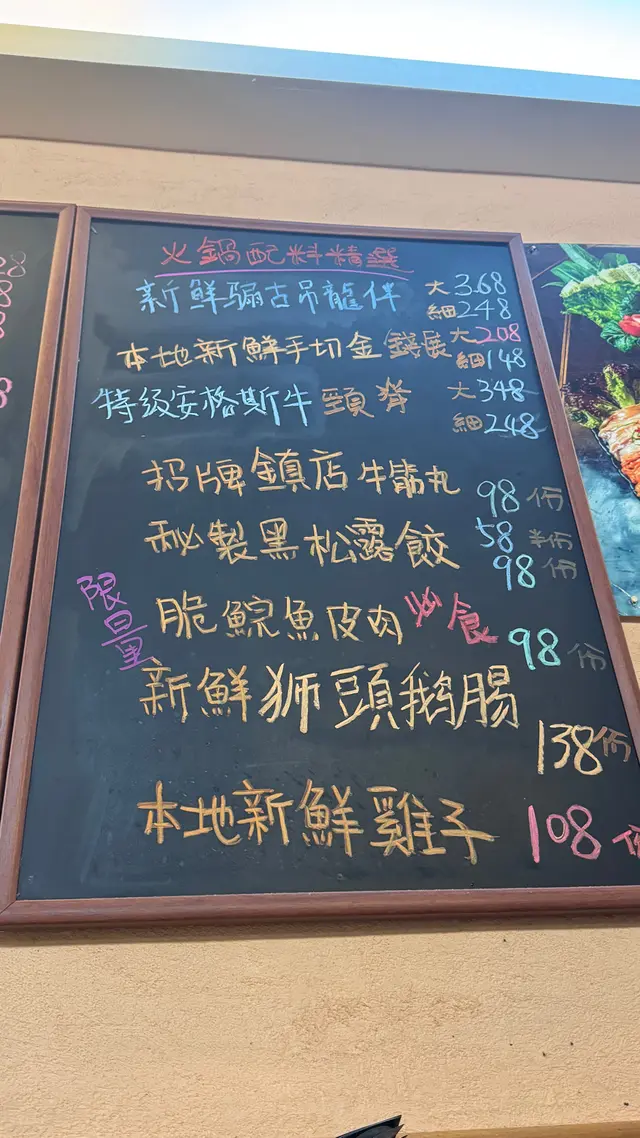 火鍋配料精選
新鮮騸古吊龍伴 大368
細248
本地新鮮手切金錢展 大208
細148
特级安格斯牛頸脊 大348
細248
招牌鎮店牛筋丸 98份
秘製黑松露餃 58半份
98份
限量 脆鯇魚皮肉 炒食 98份
新鮮狮頭鹅腸
138份
本地新鮮雞子 108份